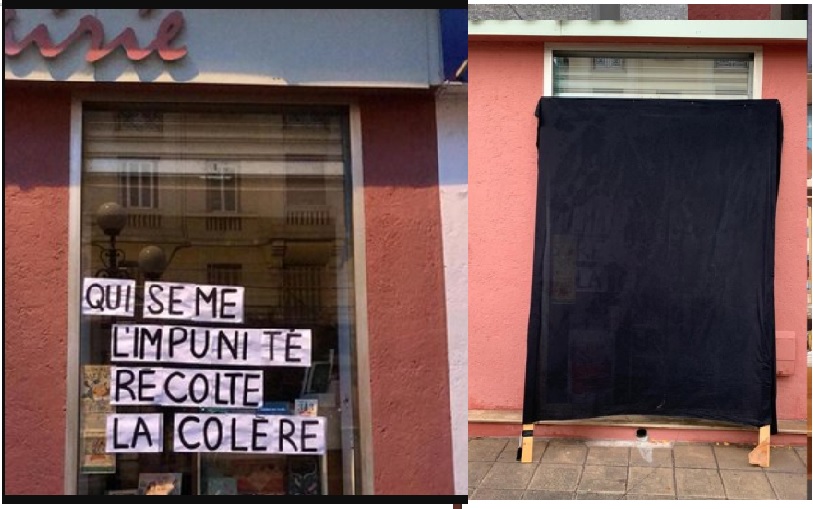 airie
QUI SEME
L'IMPUNITÉ
RÉCOLTE
LA COLÈRE